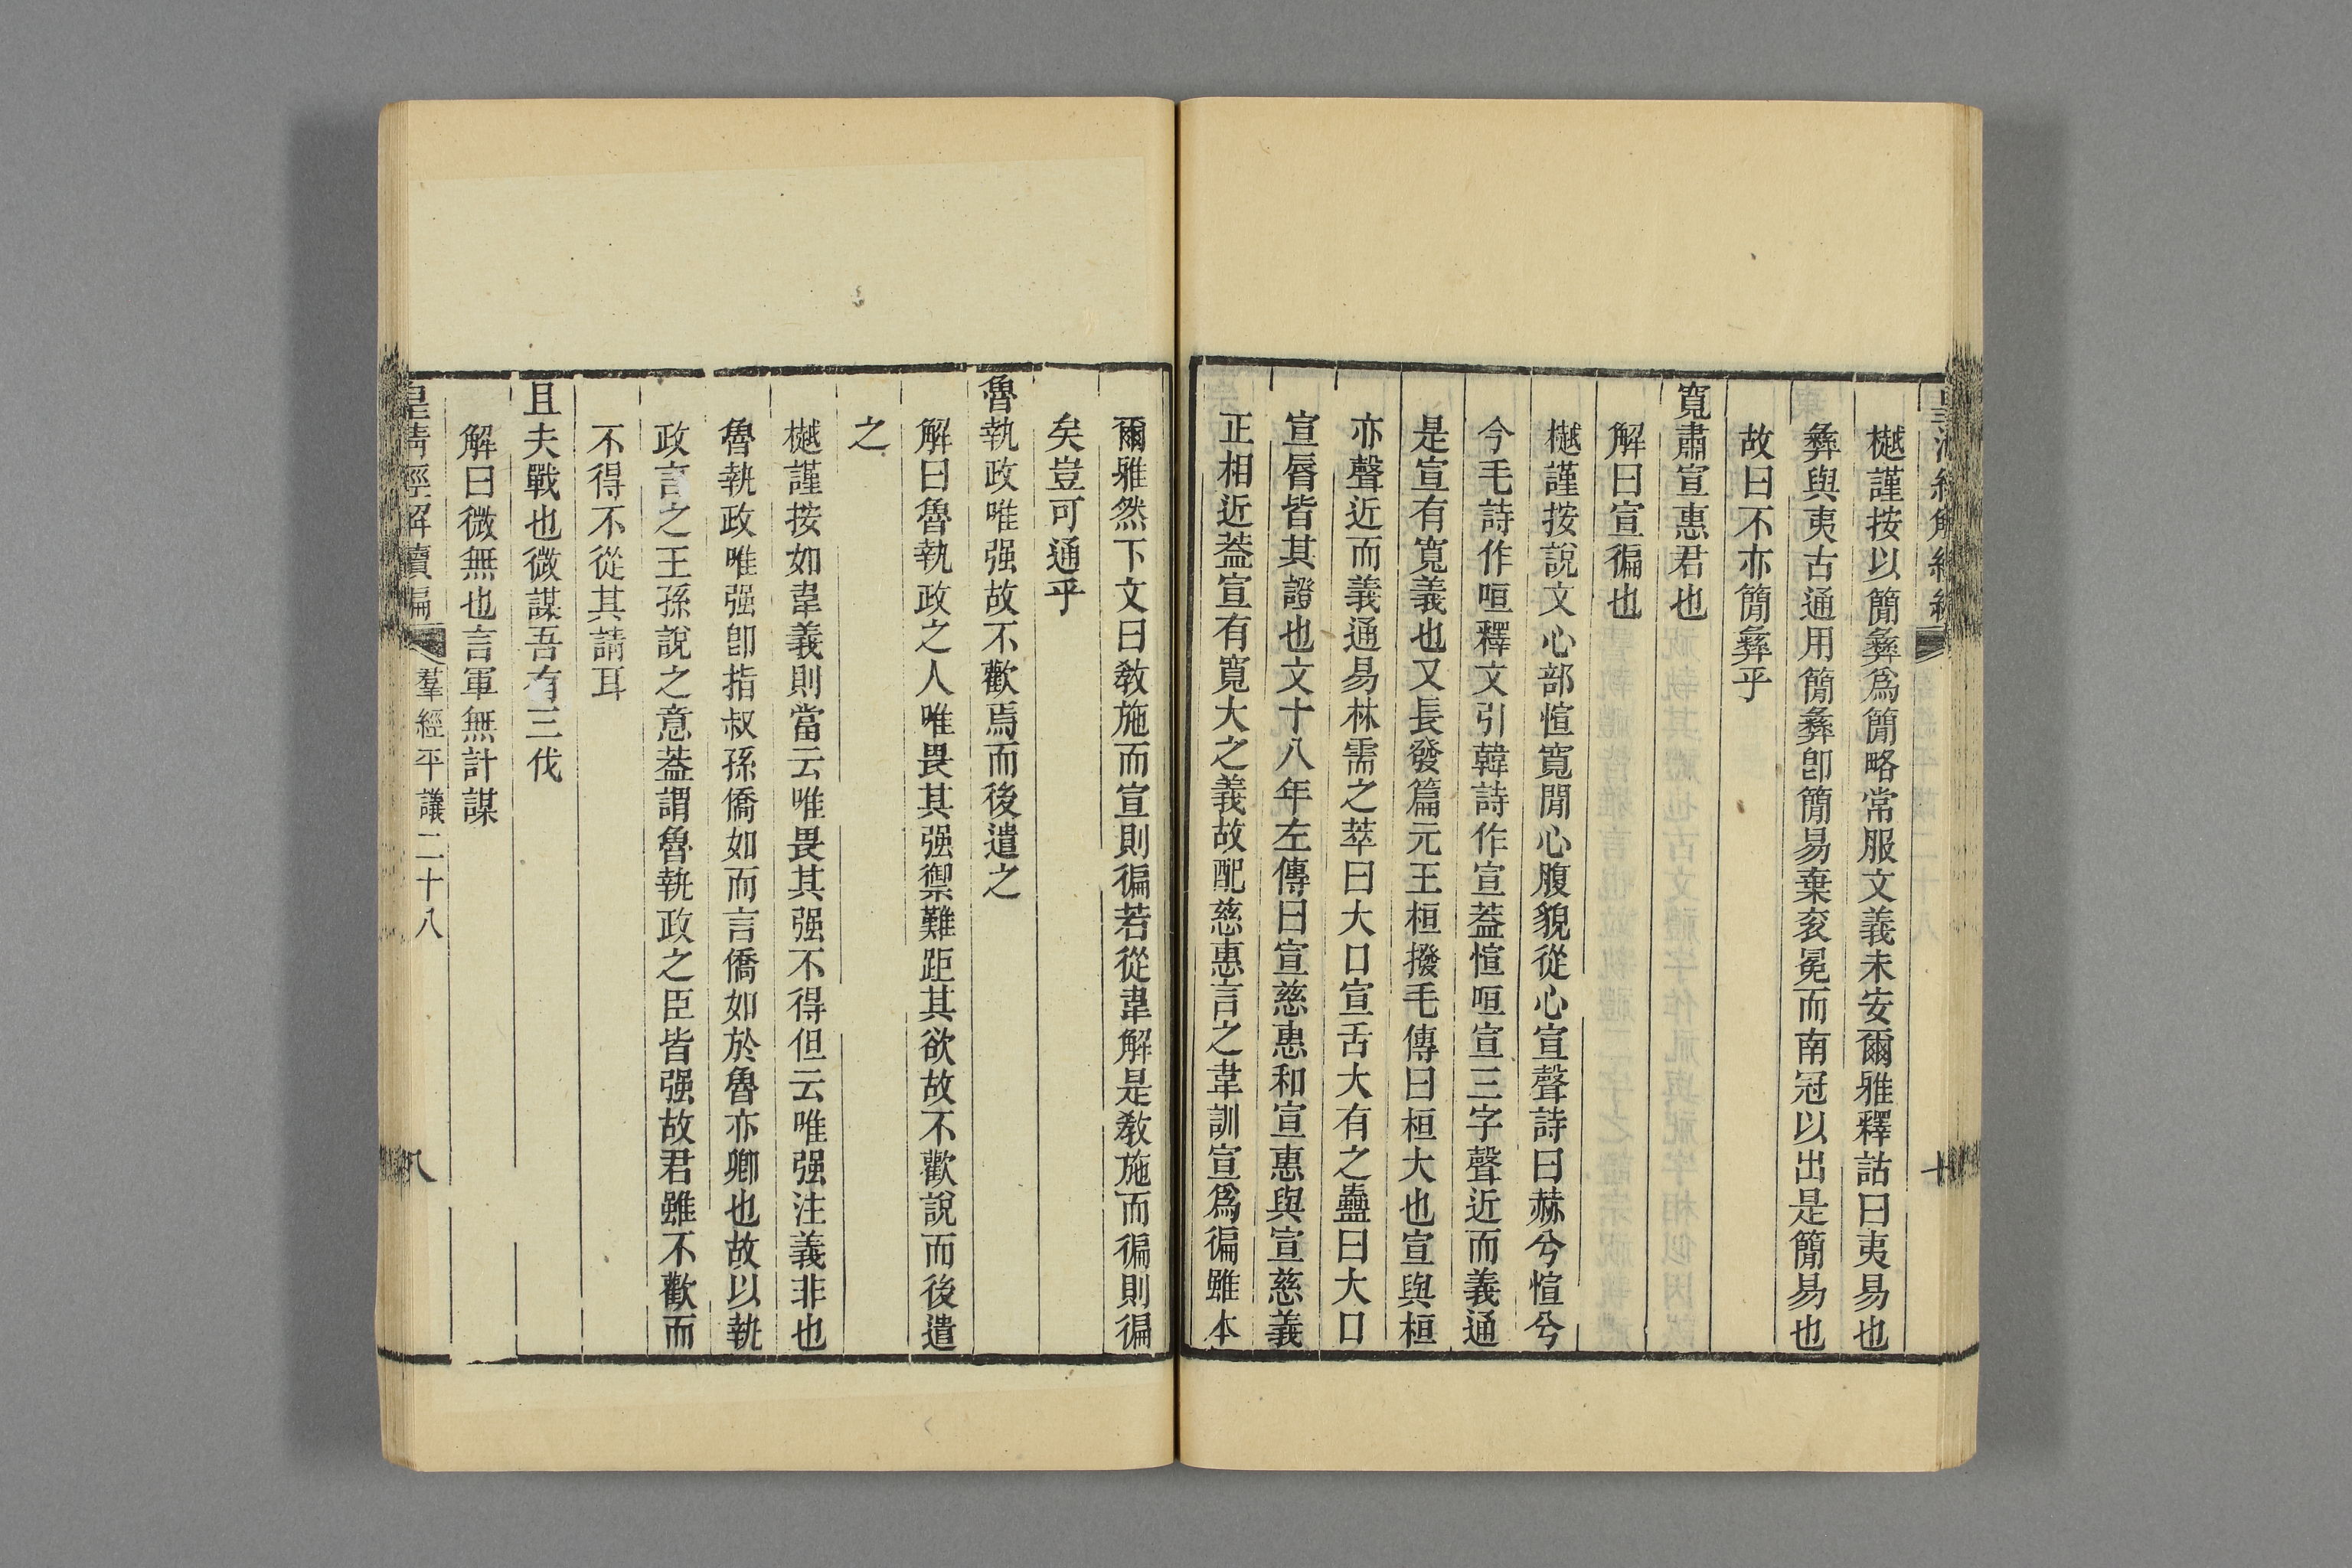 樾謹按以簡彝爲簡略常服文義未安爾雅釋詁曰夷易也
彝與夷古通用簡彝卽簡易棄衮冕而南冠以出是簡易也
故曰不亦簡彝乎
寬肅宣惠君也
解曰宣徧也
樾謹按說文心部愃寬閒心腹貌從心宣聲詩曰赫兮愃兮
今毛詩作咺釋文引韓詩作宣葢愃咺宣三字聲近而義通
是宣有寬義也又長發篇元王桓撥毛傳曰桓大也宣與桓
亦聲近而義通易林需之萃曰大口宣舌大有之蠱曰大口
宣脣皆其證也文十八年左傳曰宣慈惠和宣惠與宣慈義
正相近葢宣有寬大之義故配慈惠言之韋訓宣爲徧雖本
爾雅然下文曰敎施而宣則徧若從韋解是敎施而徧則徧
矣豈可通乎
魯執政唯强故不歡焉而後遣之
解曰魯執政之人唯畏其强禦難距其欲故不歡說而後遣
之
樾謹按如韋義則當云唯畏其强不得但云唯强注義非也
魯執政唯强卽指叔孫僑如而言僑如於魯亦卿也故以執
政言之王孫說之意葢謂魯執政之臣皆强故君雖不歡而
不得不從其請耳
且夫戰也微謀吾有三伐
解曰微無也言軍無計謀
皇淸經解續編
羣經平議二十八
八